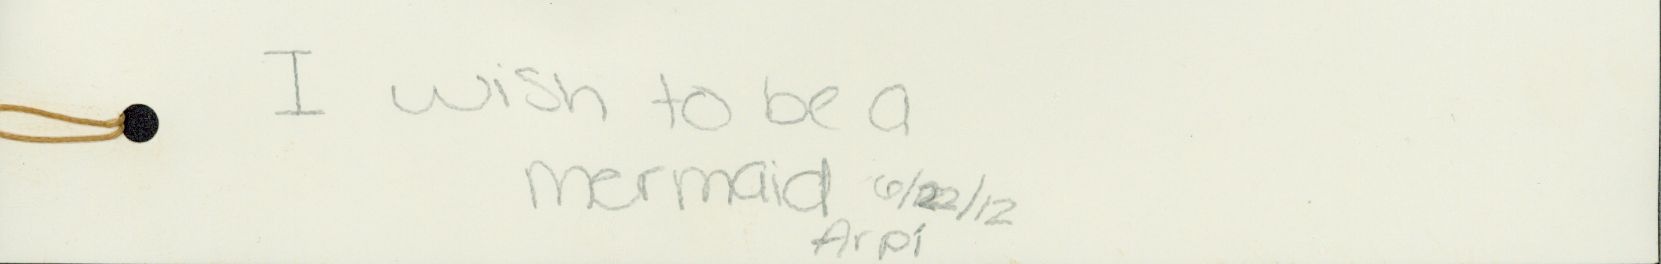 I wish to be a
mermaid 6/22/12
Arpi